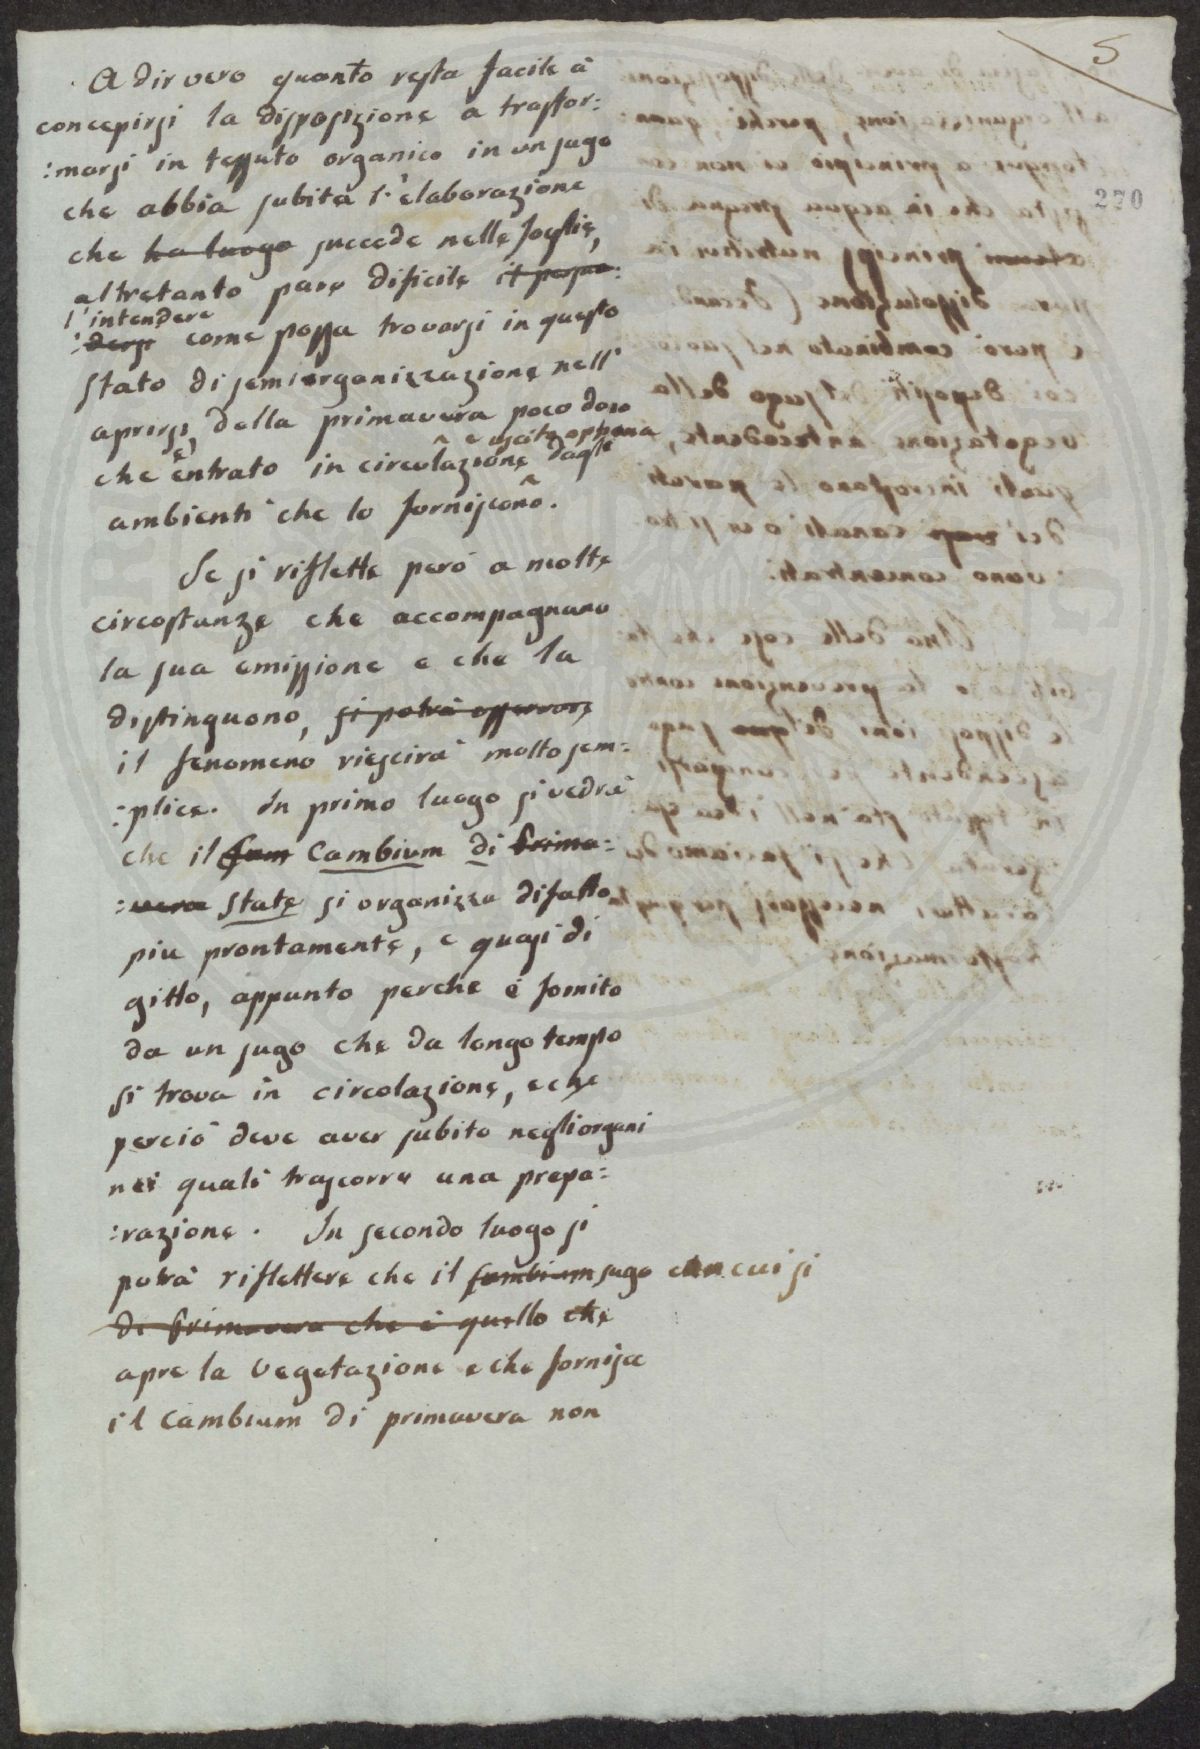 5
270
A dir vero quanto resta facile á
concepirsi la disposizione a trasfor:
:marsi in tessuto organico in un sugo
che abbia subita l'elaborazione
che ha luogo succede nelle foglie,
altretanto pare dificile il persua:
l'intendere
:dersi come possa trovarsi in questo
stato di semiorganizzazione nell'
aprirsi della primavera poco dopo
che è entrato in circolazione dagli
e uscito appena
ambienti che lo forniscono.
Se si riflette peró a molte
circostanze che accompagnano
la sua emissione e che la
distinguono, si potrá osservare
il fenomeno riescirá molto sem:
:plice. In primo luogo si vedrá
che il Cambium di Prima:
:vera State si organizza difatto
piu prontamente, e quasi di
gitto, appunto perche é fornito
da un sugo che da longo tempo
si trova in circolazione, e che
perció deve aver subito negli organi
nei quali trascorre una prepa:
:razione. In secondo luogo si
potrá riflettere che il Cambium sugo con cui si
di Primavera che é quello che
apre la Vegetazione e che fornisce
il Cambium di primavera non